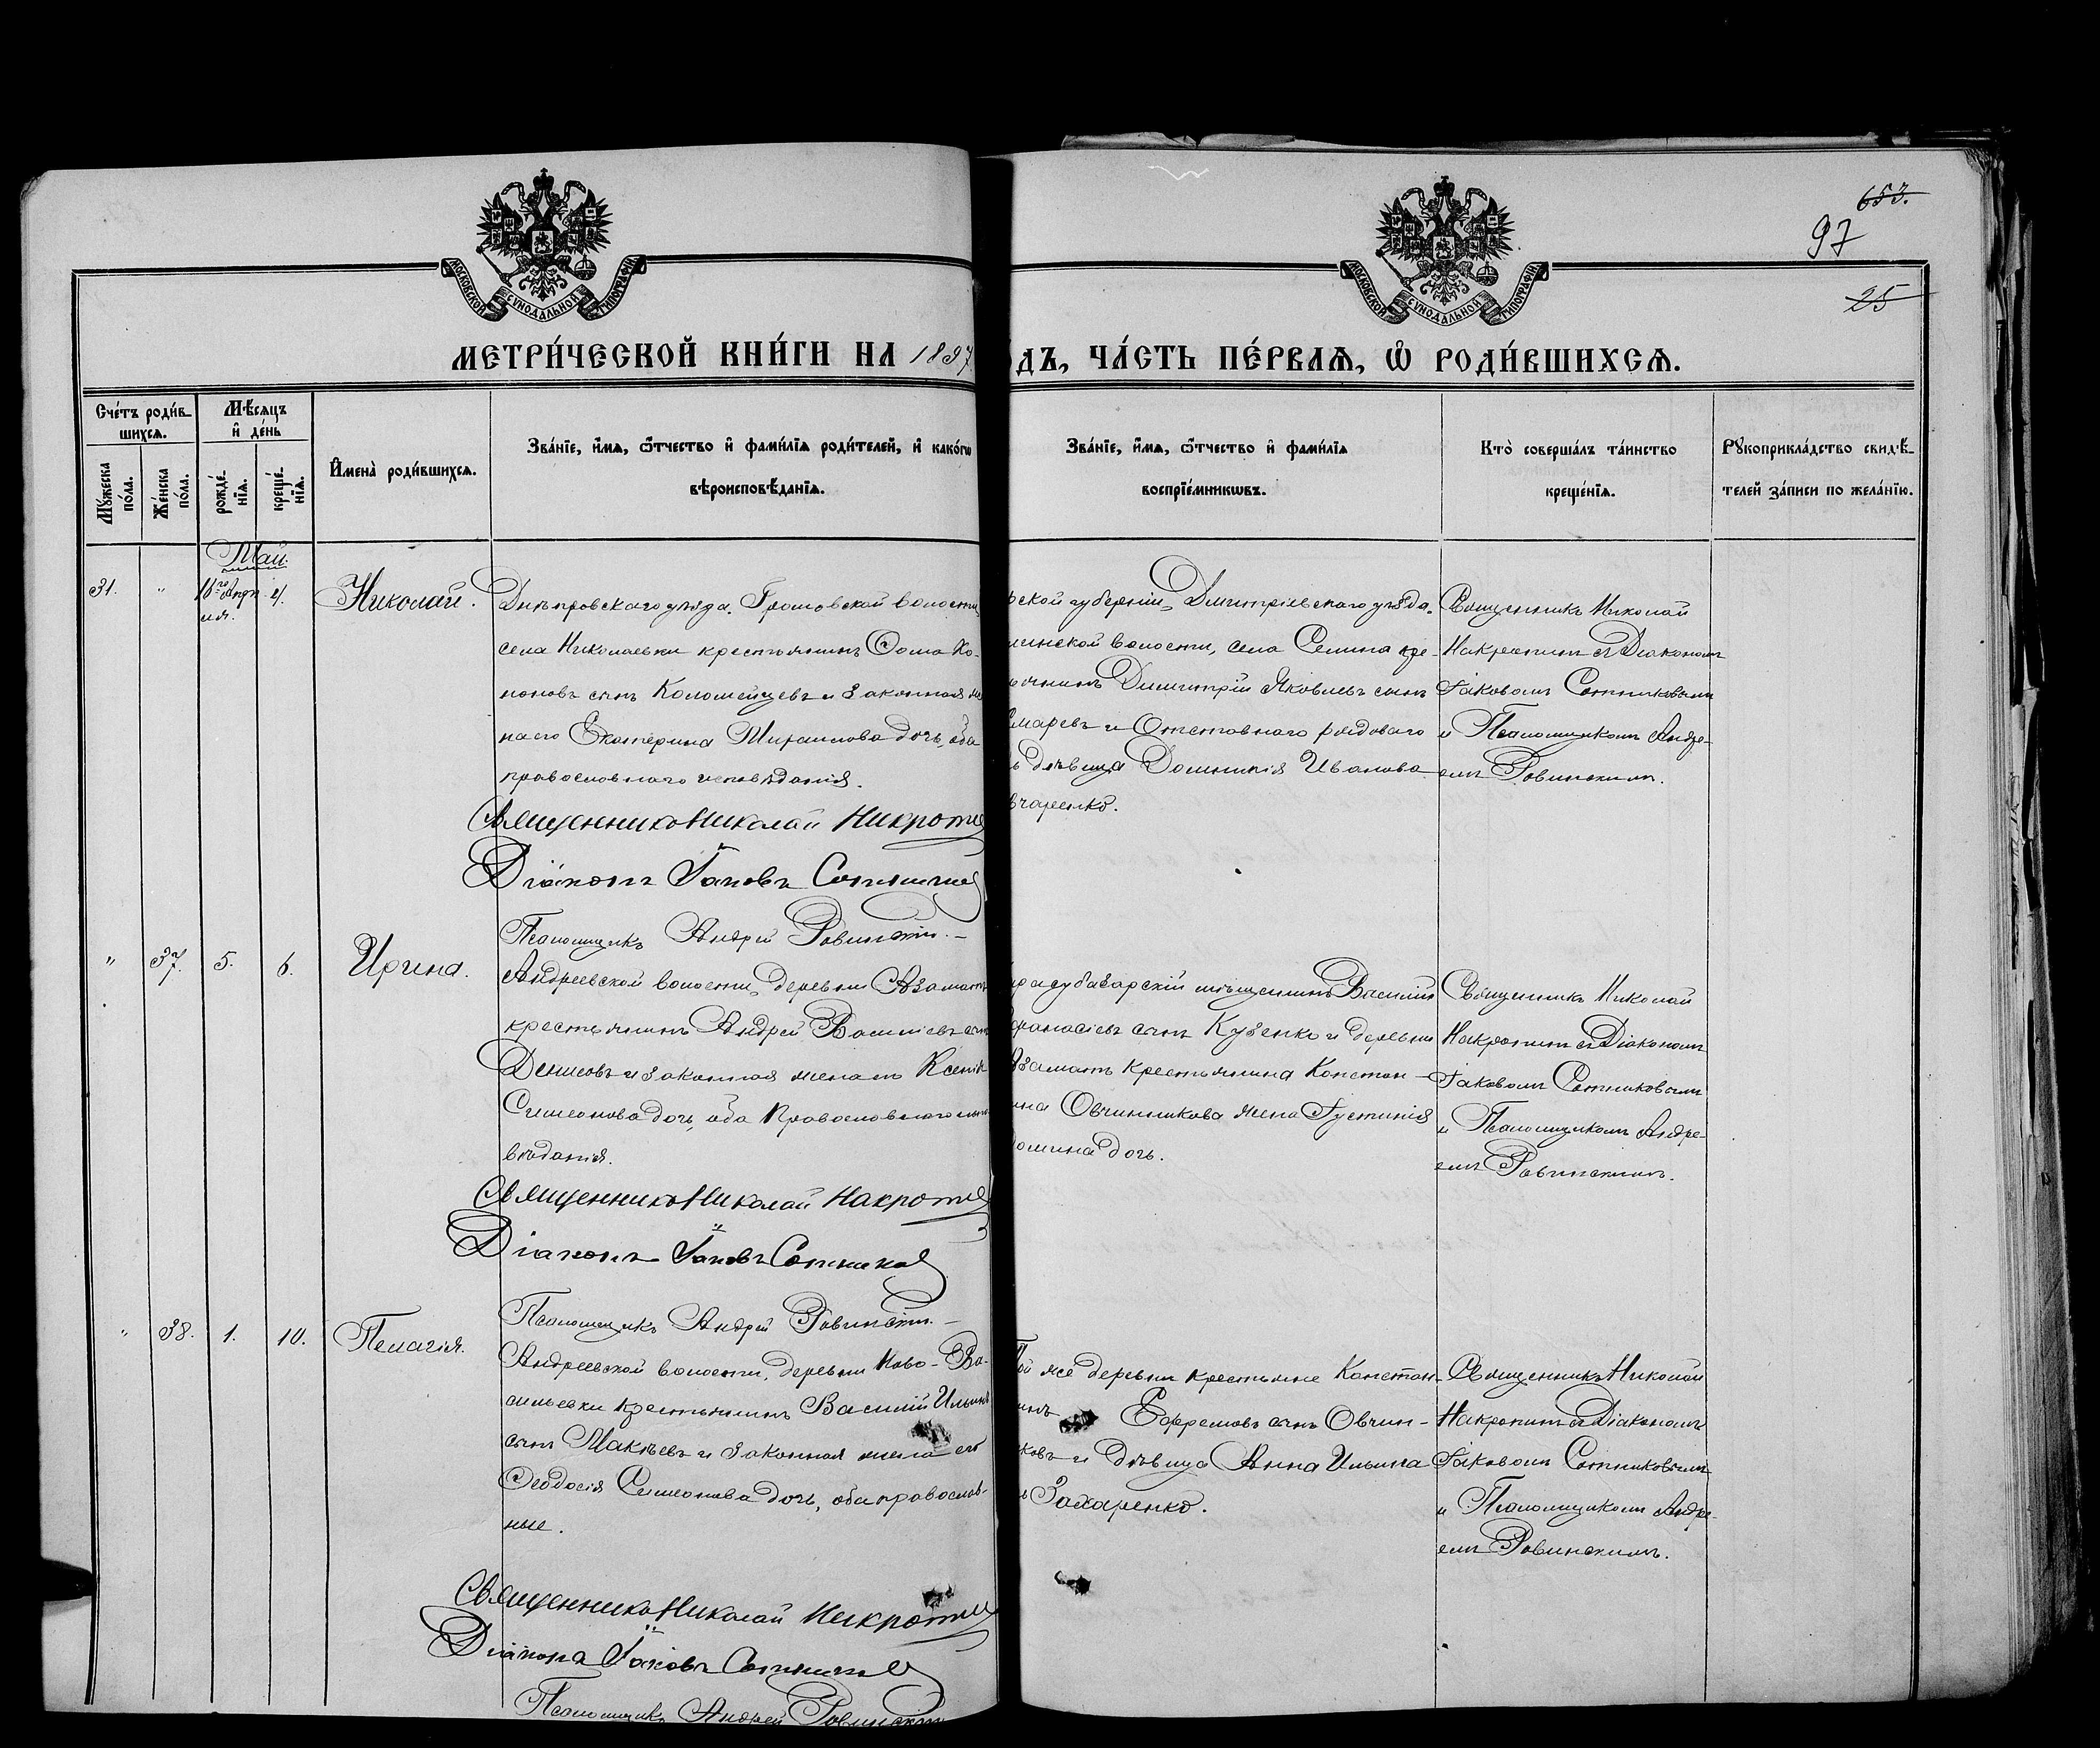 653.
97
25
МОСКОВСКОЙ СѴНОДАЛЬНОЙ ТИПОГРАФІИ
МОСКОВСКОЙ СѴНОДАЛЬНОЙ ТИПОГРАФІИ
МЕТРИ́ЧЕСКОЙ КНИ́ГИ НА 1897
ДЪ, ЧА́СТЬ ПЕ́РВАѦ, Ѡ҆ РОДИ́ВШИХСѦ.
Сче́тъ роди́в-
шихсѧ.
Мѣ́сѧцъ
и҆ де́нь
Мꙋ́жеска по́ла.
Же́нска по́ла.
рожде́-
нїѧ.
креще́-
нїѧ.
И҆мена̀ роди́вшихсѧ.
Зва́нїе, и҆́мѧ, ѻ҆́тчество и҆ фами́лїѧ роди́телей, и҆ како́гѡ
вѣроисповѣ́данїѧ.
Зва́нїе, и҆́мѧ, ѻ҆́тчество и҆ фами́лїѧ
воспрїе́мникѡвъ.
Кто̀ соверша́лъ та́инство
креще́нїѧ.
Рꙋкоприкла́дство свидѣ́-
телей за́писи по жела́нїю.
Май.
31. " 16го Апр 4. Николай.
Днѣпровскаго уѣзда. Громовской волости
села Николаевки крестьянинъ Ѳома Ко-
ноновъ сынъ Коломейцевъ и законная же
на его Екатерина Михаилова дочь, оба
православнаго исповѣданія.
Священникъ Николай Накропин
Діаконъ Іаковъ Сотников
Псаломщикъ Андрей Ровинскій.
ской губерніи, Димитріевскаго уѣзда.
инской волости, села Селина кре-
янинъ Димитрій Яковлевъ сынъ
маревъ и Отставнаго рядового
дѣвица Домникія Иванова
вчаренко.
Священникъ Николай
Накропинъ съ Діакономъ
Іаковомъ Сотниковымъ
и Псаломщикомъ Андре-
емъ Ровинскимъ.
" 37. 5. 6. Ирина.
Андреевской волости, деревни Азаматъ
крестьянинъ Андрей Васильевъ сынъ
Денисовъ и законная жена его Ксенія
Симеонова дочь, оба Православнаго испо
вѣданія.
Священникъ Николай Накропин
Діаконъ Іаковъ Сотников
Псаломщикъ Андрей Ровинскій.
расубазарскій мѣщанинъ Василій
фанасіевъ сынъ Кузенко и деревни
заматъ крестьянина Констан-
ина Овчинникова жена Іустинія
омина дочь.
Священникъ Николай
Накропинъ съ Діакономъ
Іаковомъ Сотниковымъ
и Псаломщикомъ Андре-
емъ Ровинскимъ.
" 38. 1. 10. Пелагія.
Андреевской волости, деревни Ново-Ва-
сильевки крестьянинъ Василій Ильинъ
сынъ Макѣевъ и законная жена его
Ѳеодосія Симеонова дочь, оба православ-
ные.
Священникъ Николай Накропин
Діаконъ Іаковъ Сотников
Псаломщикъ Андрей Ровинскій
Той же деревни крестьяне Констан-
инъ Ефремовъ сынъ Овчин-
ковъ и дѣвица Анна Ильина
Захаренко.
Священникъ Николай
Накропинъ съ Діакономъ
Іаковомъ Сотниковымъ
и Псаломщикомъ Андре-
емъ Ровинскимъ.